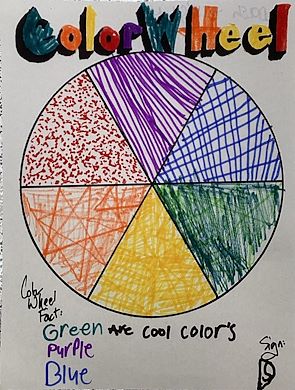 Color Wheel
Color
Wheel
Fact:
Green Are cool color's
Purple
Blue
Sign: